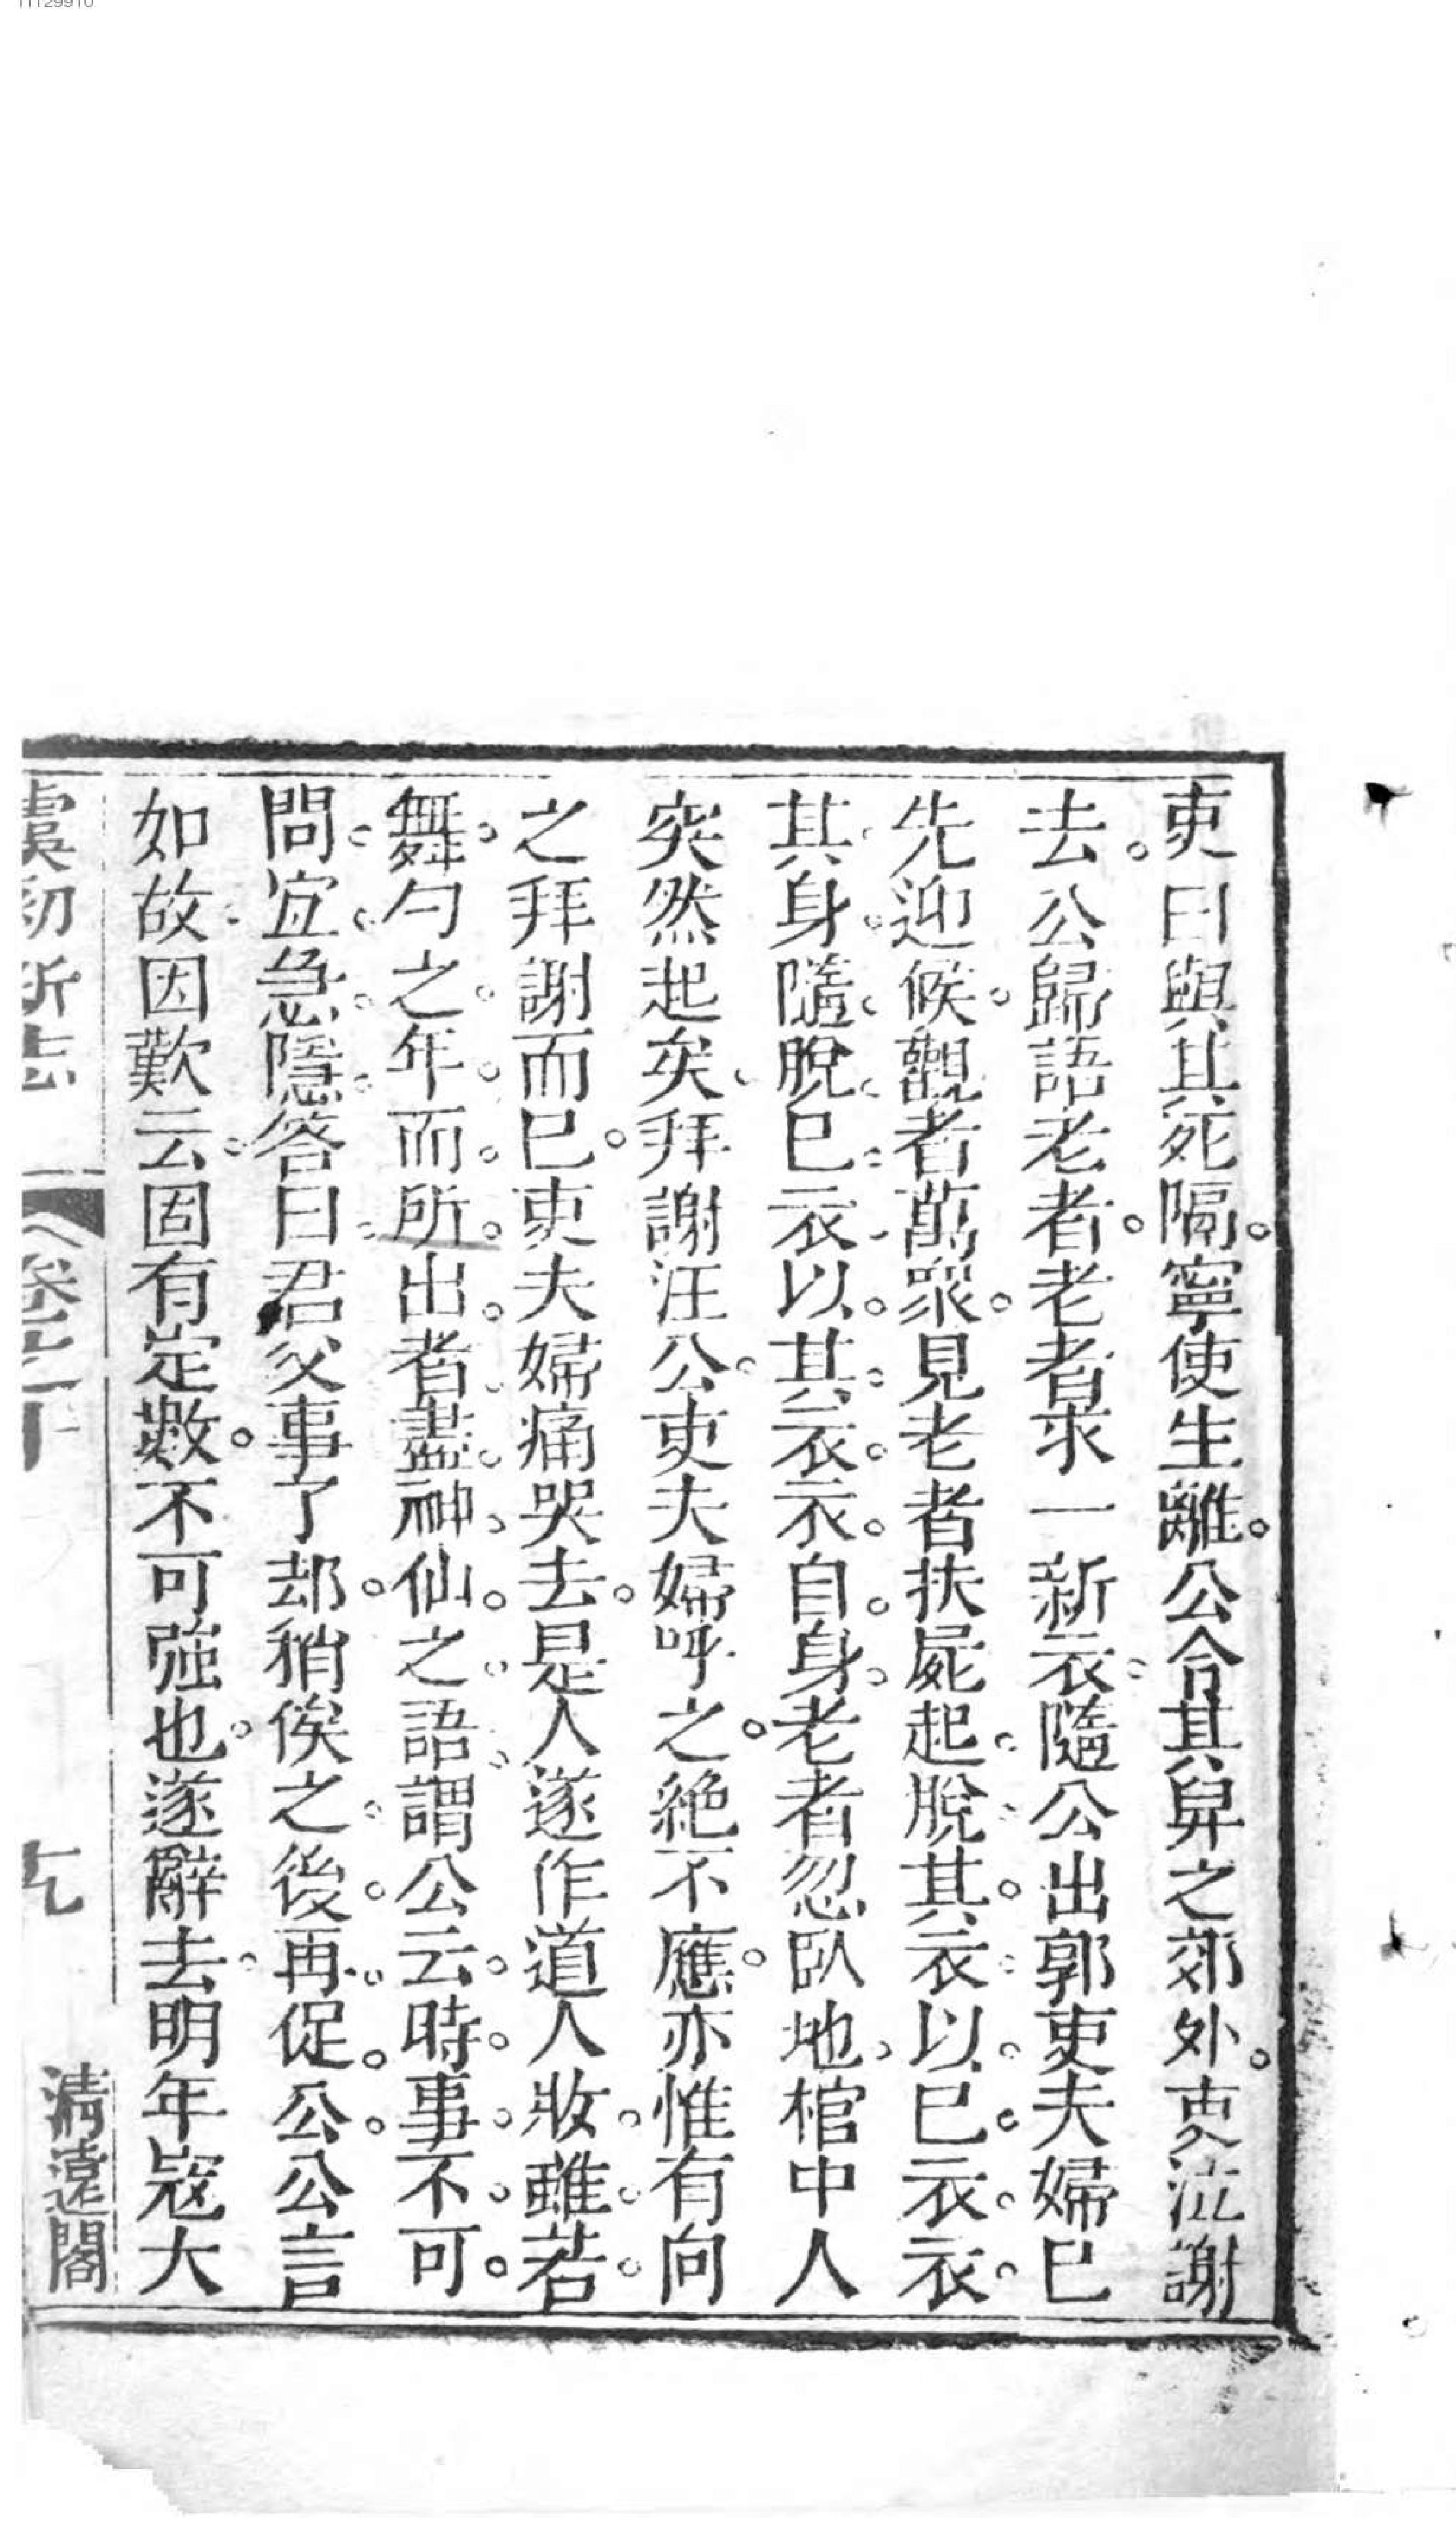 吏曰與其死隔。寧使生離。公令其舁之郊外。吏泣謝
去。公歸語老者。老者求一新衣。隨公出郭吏夫婦已
先迎候。觀者萬衆。見老者扶屍起。脫其。衣。以。已。衣。衣。
其。身。隨。脫。已。衣。以。其。衣。衣。自。身。老者忽臥地、棺中人
突然起矣、拜謝汪公。吏夫婦呼之。絶不應。亦惟有向
之拜謝而已。吏夫婦痛哭去。是人遂作道人妝。雖。若。
舞。勺之。年。而。所。出。者。盡。神、仙。之。語、謂公云。時。事。不。可。
問。宜。急。隱。答曰。君父事了却。稍俟之。後。再。促。公。公言
如故。因歎云。固有定數。不可強也。遂辭去。明年寇大
虞初新志
卷之一
清遠閣